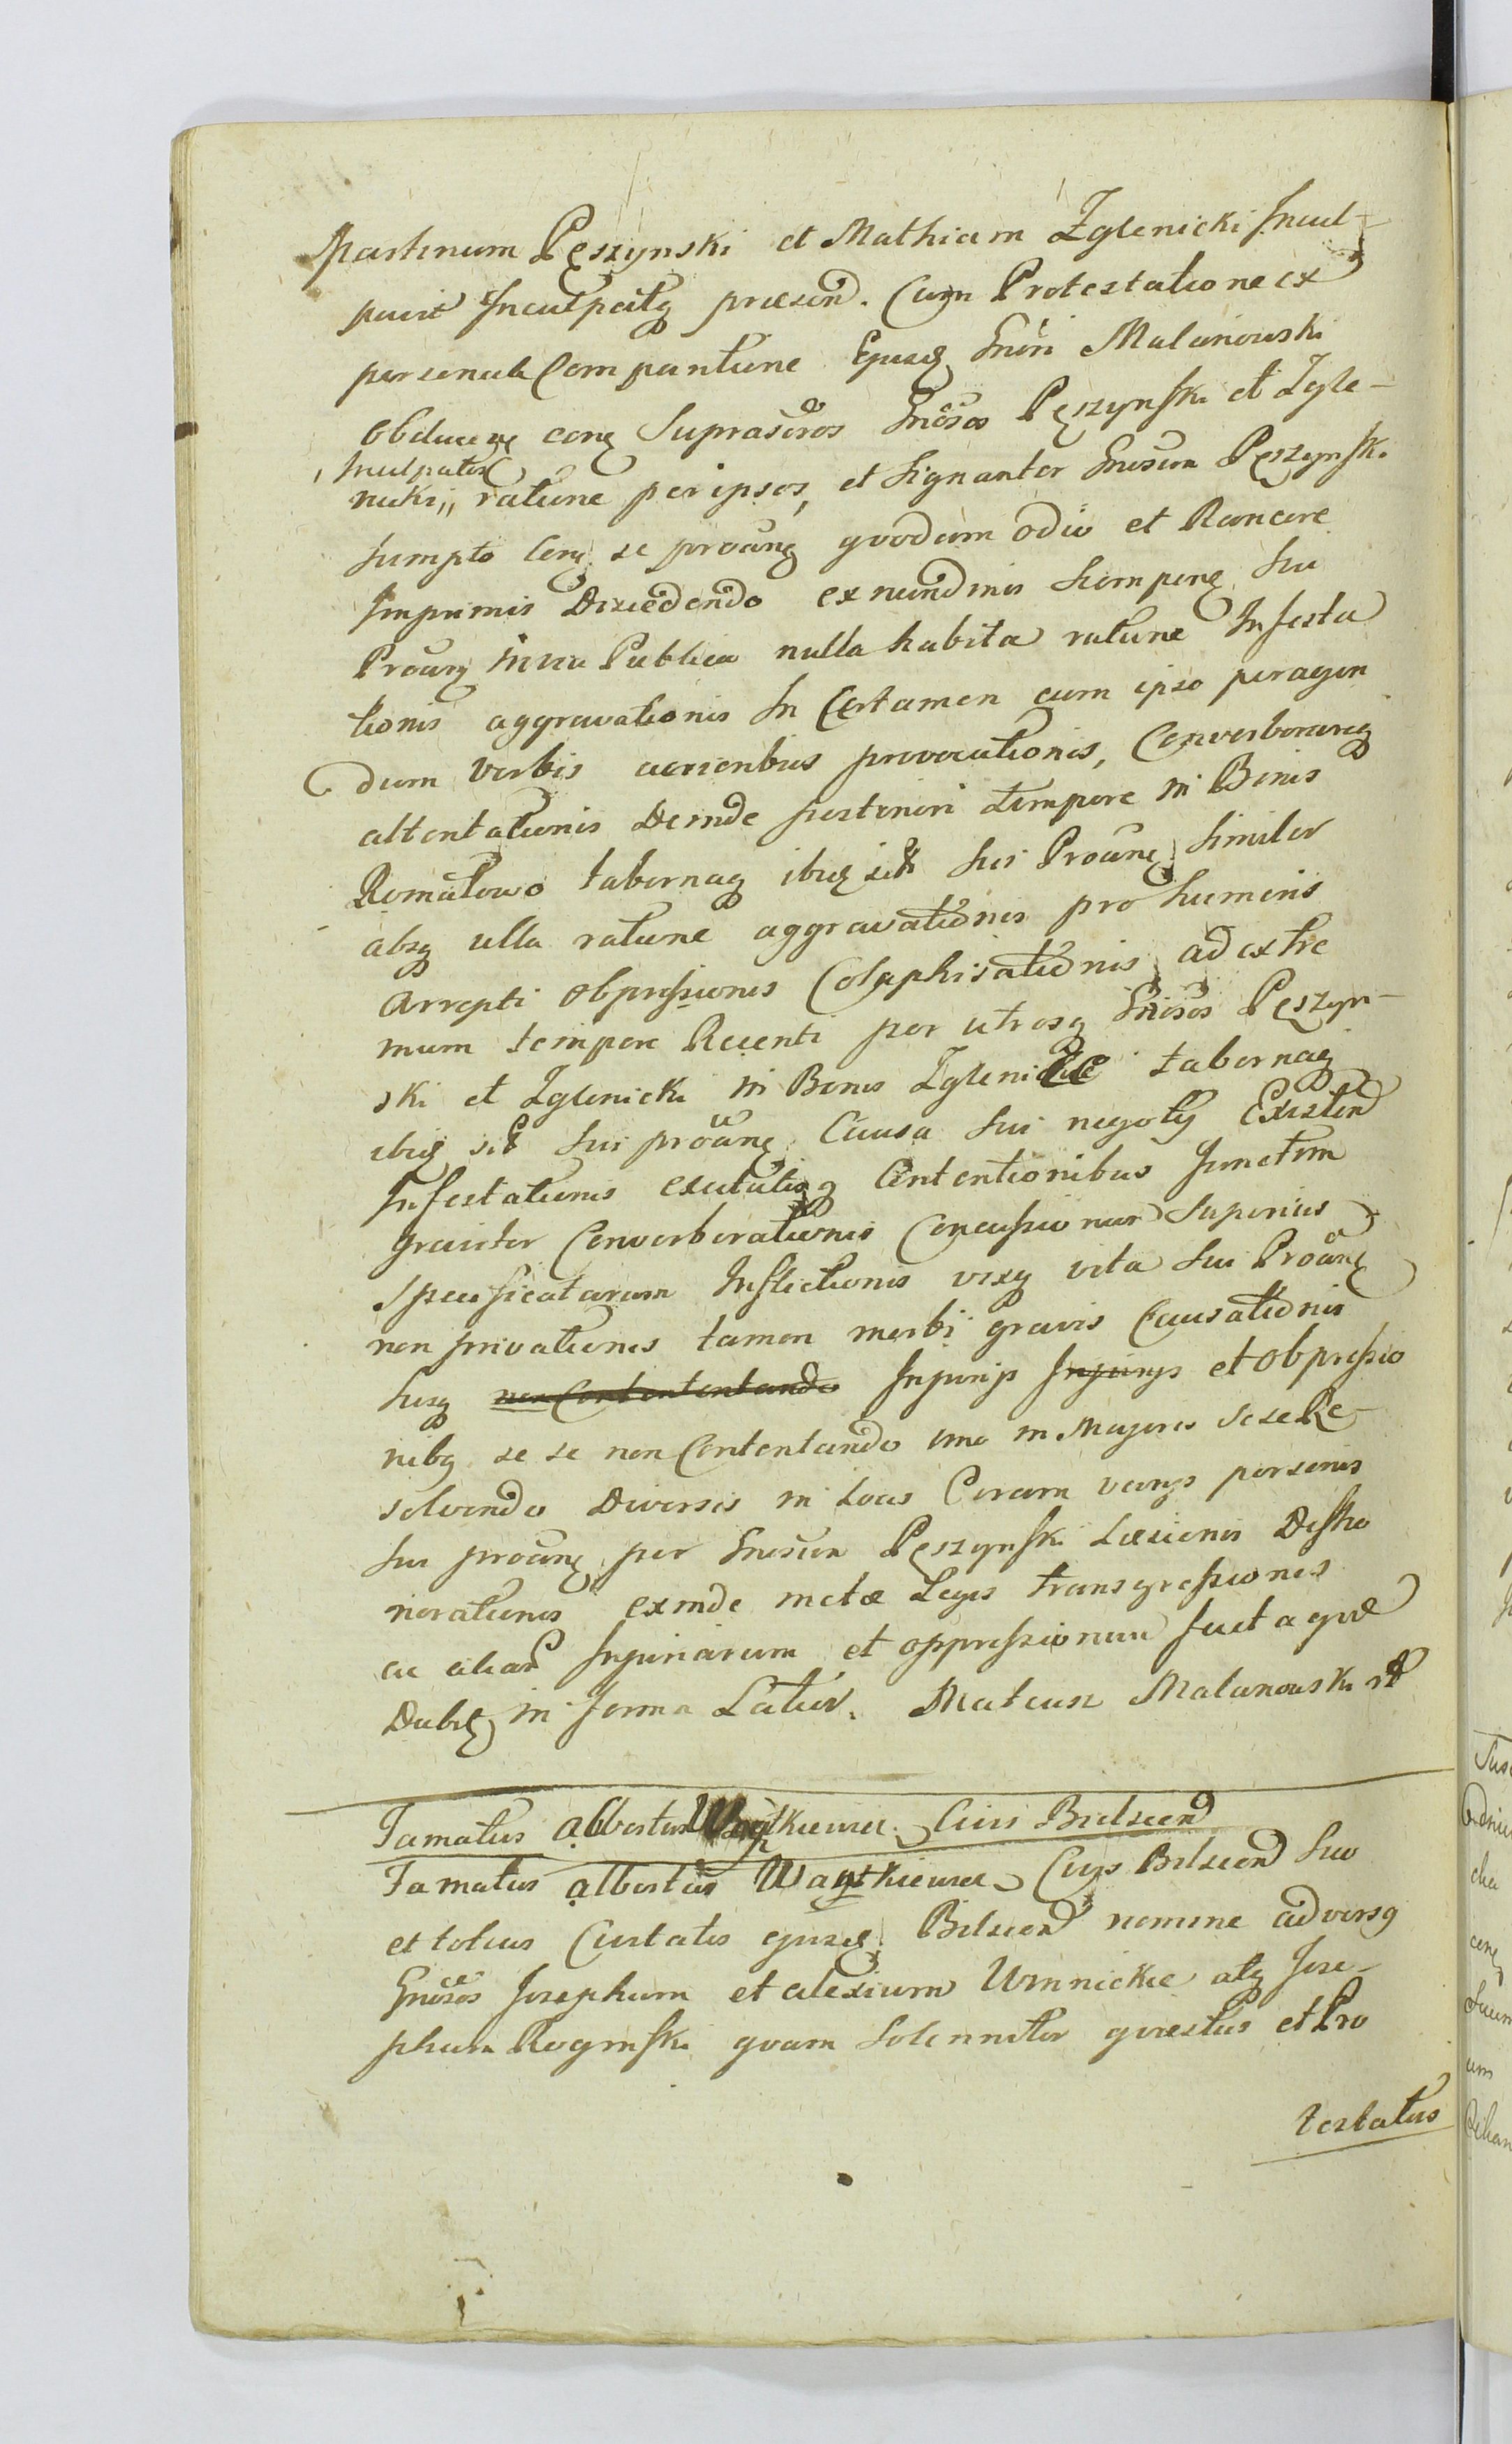 Martinum Pęszynski et Mathiam Zglenicki Incul-
pavit Inculpatq praesen. Cum Protestatione ex
personali Comparitione Ejusd Gnosi Malanowski
Obducens conq Suprascros Gnosos Pęszynski et Zgle-
Inculpatos
nicki,, ratione per ipsos, et Signanter Gnosum Pęszynski
sumpto conq se proang quodam odio et Rancore
Imprimis Discedendo ex nundinis Siempinę sui
Proang in via Publica nulla habita ratione Infesta
tionis aggravationis In Certamen cum ipso peragen
dum verbis acrioribus provocationis, Converberareq
attentationis Deinde postinori tempore in Bonis
Romatowo tabernaq ibiq sit sui Proang similer
absq ulla ratione aggravationis pro humeris
Arrepti obpressionis Colaphisationis ad extre
mum tempore Recenti per utrosq Gnosos Pęszyn-
ski et Zglenicki in Bonis Zglenice tabernaq
ibiq sit sui proang Causa sui negotij Existen
Infestationis Contentionibus Junctim
graviter Converberationis Concussionum Superius
Specificatarum Inflictionis vixq vita sui Proang
non privationis tamen morbi gravis Causationis
hisq non Contententando Injurijs Injurijs et obpressio
nibq se se non Contentando imo in Majores sese Re-
solvendo Diversis in locis Coram varijs personis
sui proang per Gnosum Pęszynski Laesionis Disho
norationis exinde metae Legis transgressionis
ac aliar Injuriarum et oppressionum factaque
Dubit in forma Latius. Mateusz Malanowski

Famatus Albertus Waytkiewicz Civis Bielscen
Famatus Albertus Waytkiewicz Civis Bielscen suo
et totius Civitatis ejusd Bielscen nomine adversq
Gnosos Josephum et Alexium Umnickie atq Jose-
phum Roginski quam Solenniter questus et Pro
testatus